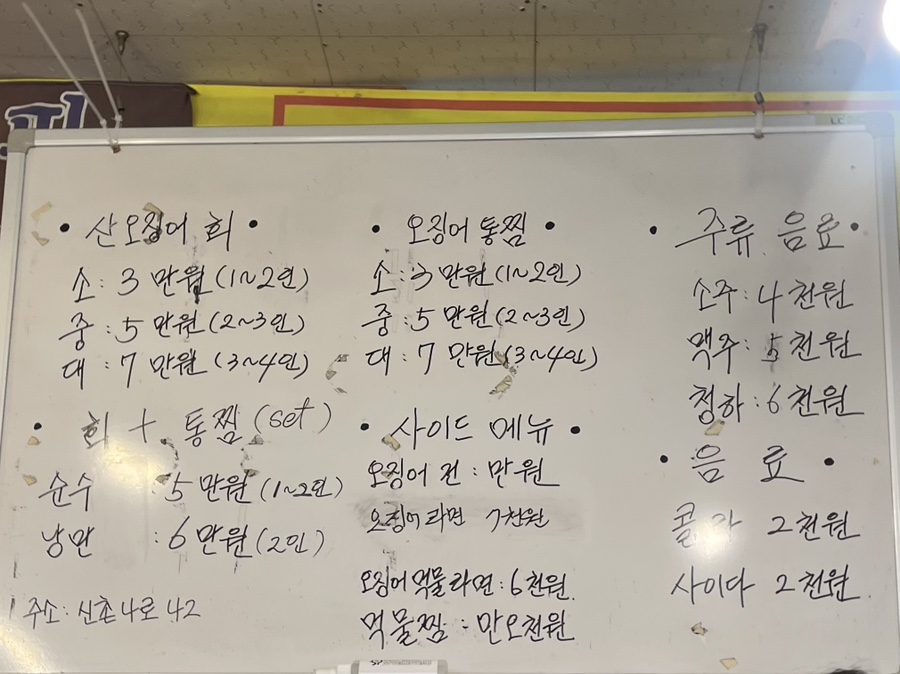 • 산오징어 회 •
소 : 3 만원 (1~2인)
중 : 5 만원 (2~3인)
대 : 7 만원 (3~4인)
• 회 + 통찜 (set)
순수 : 5 만원 (1~2인)
낭만 : 6 만원 (2인)
주소 : 신촌 4로 42
• 오징어 통찜 •
소 : 3 만원 (1~2인)
중 : 5 만원 (2~3인)
대 : 7 만원 (3~4인)
• 사이드 메뉴 •
오징어 전 : 만원
오징어라면 7천원
오징어 먹물라면 : 6천원
먹물찜 : 만오천원
• 주류 음료 •
소주 : 4 천원
맥주 : 5 천원
청하 : 6 천원
• 음 료 •
콜라 2천원
사이다 2천원